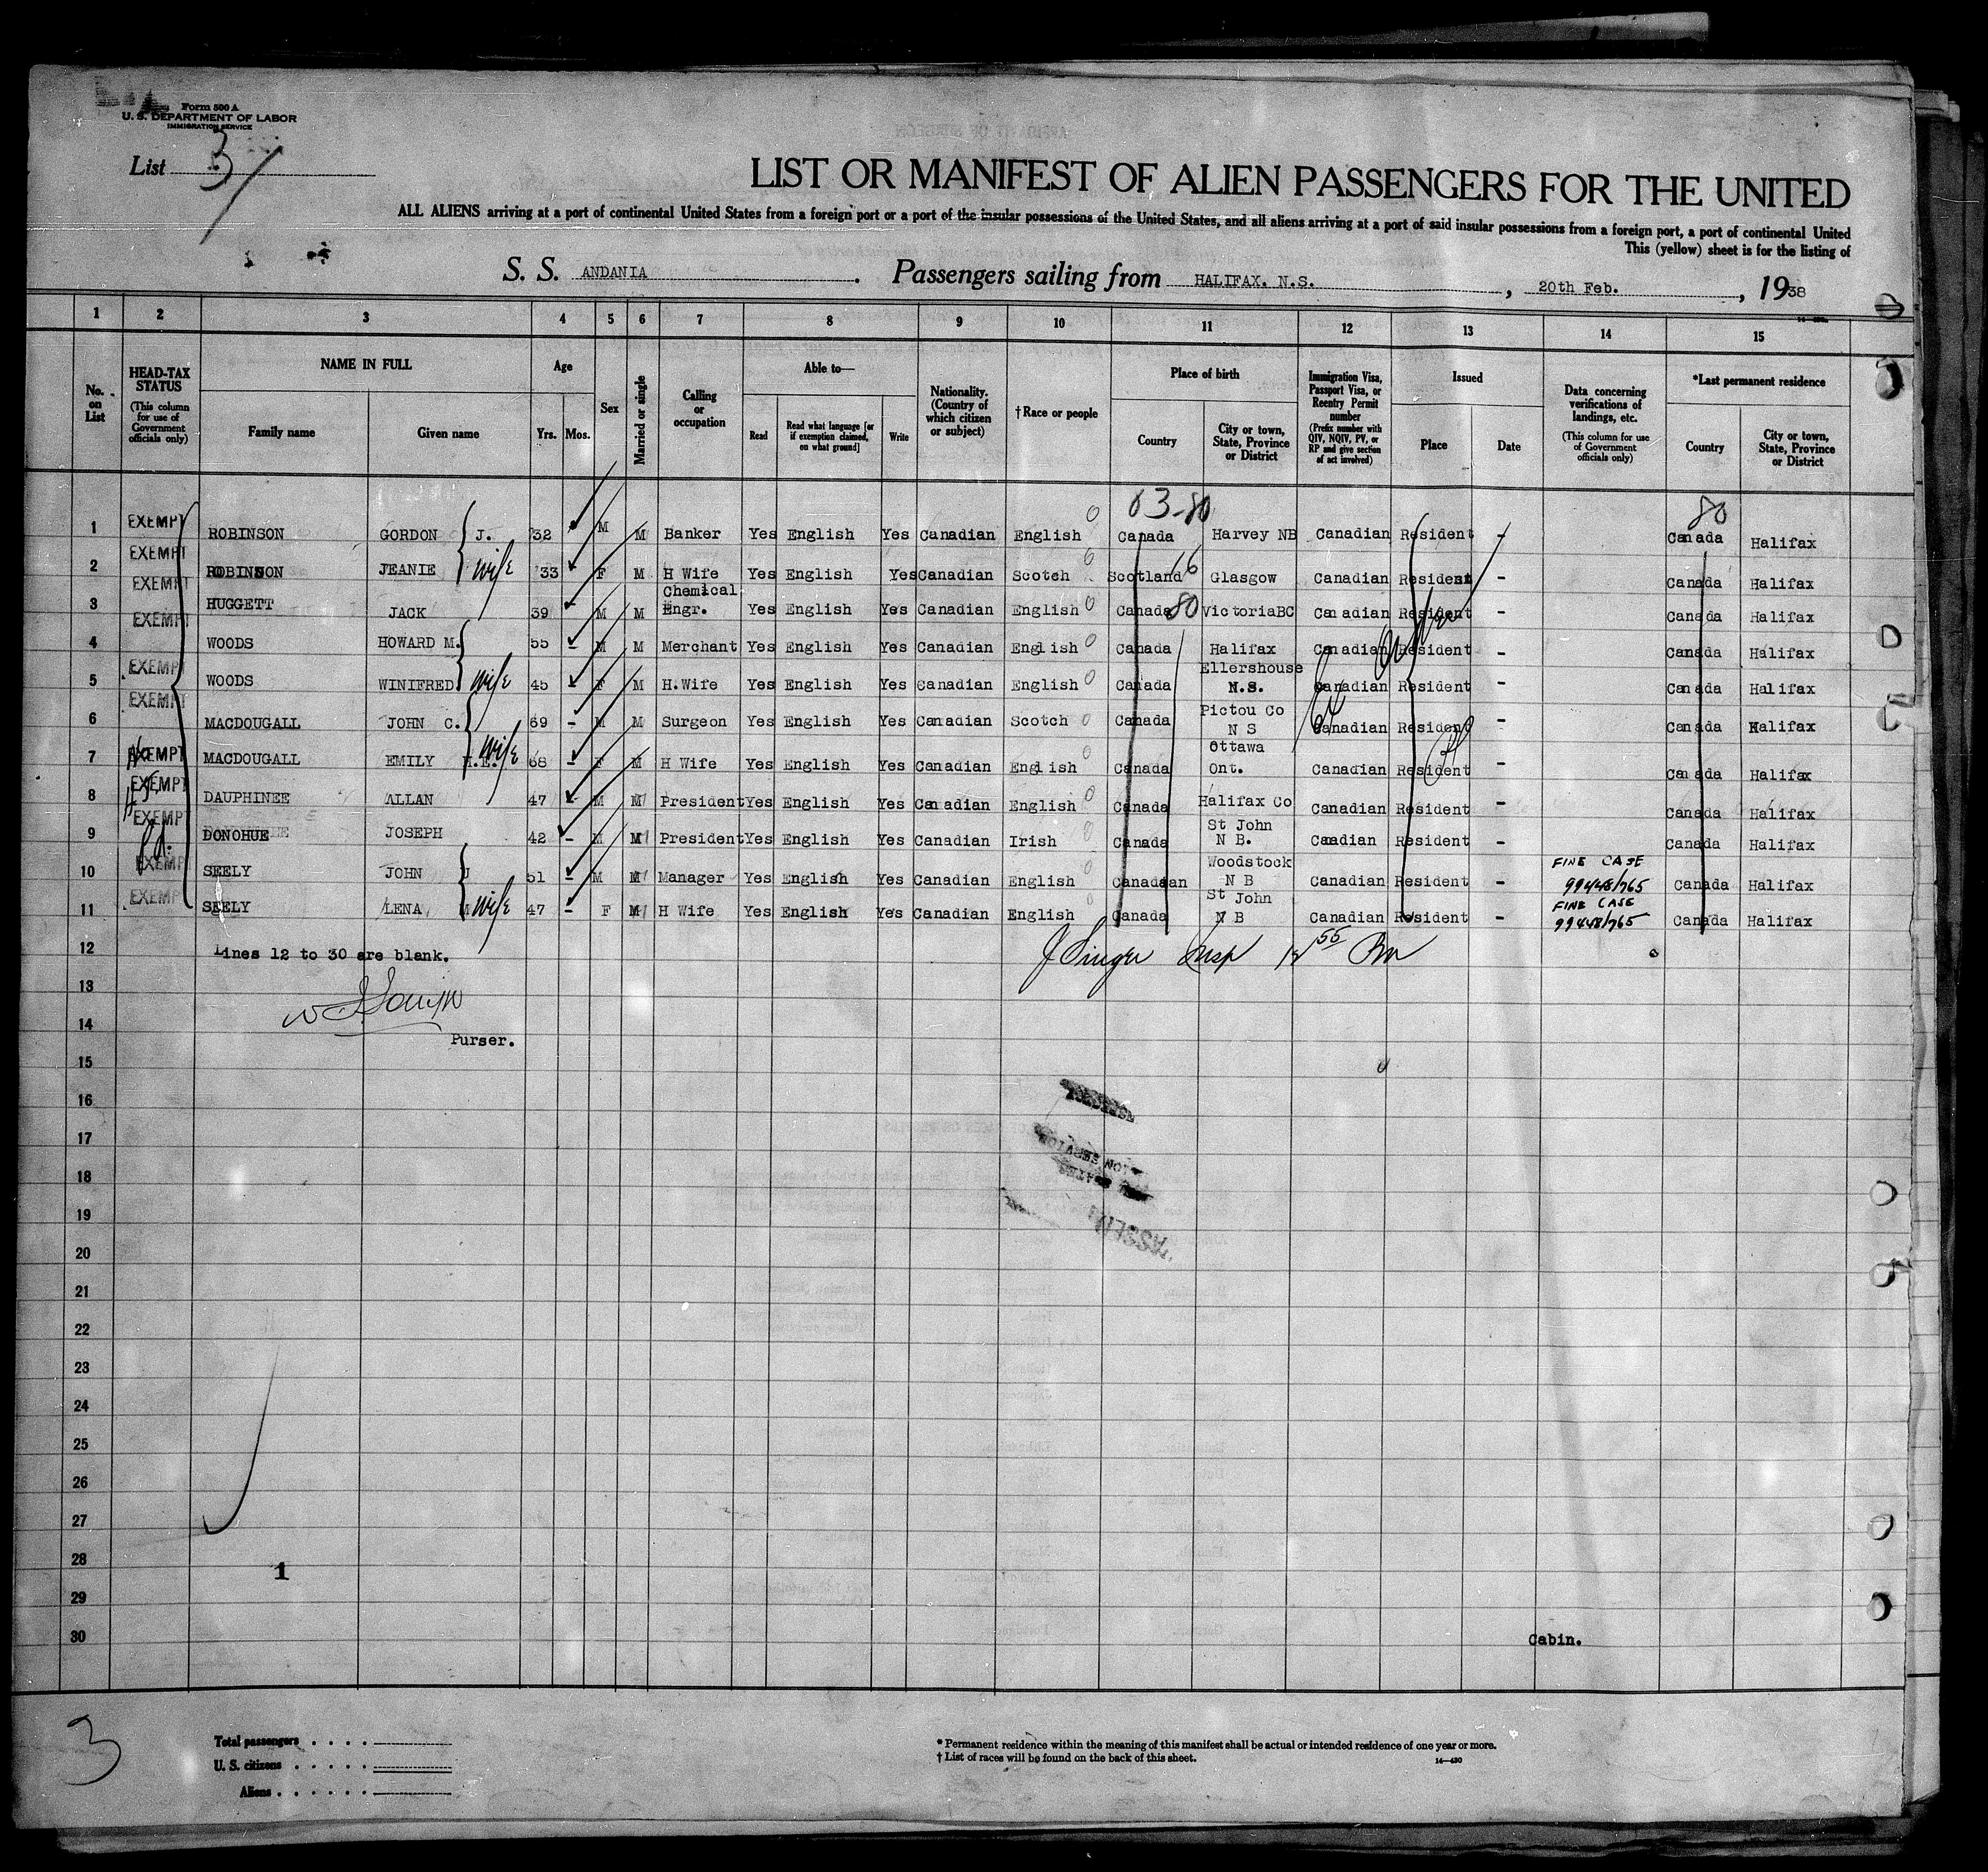 Form 500 A
U. S. DEPARTMENT OF LABOR
IMMIGRATION SERVICE
List 3
LIST OR MANIFEST OF ALIEN PASSENGERS FOR THE UNITED
ALL ALIENS arriving at a port of continental United States from a foreign port or a port of the insular possessions of the United States, and all aliens arriving at a port of said insular possessions from a foreign port, a port of continental United
This (yellow) sheet is for the listing of
S. S. ANDANIA. Passengers sailing from HALIFAX. N.S., 20th Feb., 1938
1 2 3 4 5 6 7 8 9 10 11 12 13 14 15
No. on List
HEAD-TAX STATUS
(This column for use of Government officials only)
NAME IN FULL
Family name
Given name
Age
Yrs. Mos.
Sex
Married or single
Calling or occupation
Able to—
Read
Read what language [or if exemption claimed, on what ground]
Write
Nationality. (Country of which citizen or subject)
† Race or people
Place of birth
Country
City or town, State, Province or District
Immigration Visa, Passport Visa, or Reentry Permit number
(Prefix number with QIV, NQIV, PV, or RP and give section of act involved)
Issued
Place
Date
Data concerning verifications of landings, etc.
(This column for use of Government officials only)
*Last permanent residence
Country
City or town, State, Province or District
03-80 80
1 EXEMPT ROBINSON GORDON J. 32 M M Banker Yes English Yes Canadian English 0 Canada Harvey NB Canadian Resident - Canada Halifax
2 EXEMPT ROBINSON JEANIE wife 33 F M H Wife Yes English Yes Canadian Scotch 0 Scotland 16 Glasgow Canadian Resident - Canada Halifax
3 EXEMPT HUGGETT JACK 39 - M M Chemical Engr. Yes English Yes Canadian English 0 Canada 80 VictoriaBC Canadian Resident - Canada Halifax
4 EXEMPT WOODS HOWARD M. 55 - M M Merchant Yes English Yes Canadian English 0 Canada Halifax Canadian Resident - Canada Halifax
5 EXEMPT WOODS WINIFRED wife 45 - F M H.Wife Yes English Yes Canadian English 0 Canada Ellershouse N.S. Canadian Resident - Canada Halifax
6 EXEMPT MACDOUGALL JOHN C. 69 - M M Surgeon Yes English Yes Canadian Scotch 0 Canada Pictou Co N S Canadian Resident - Canada Halifax
7 EXEMPT MACDOUGALL EMILY H.E. wife 68 - F M H Wife Yes English Yes Canadian English 0 Canada Ottawa Ont. Canadian Resident - Canada Halifax
8 EXEMPT DAUPHINEE ALLAN 47 - M M President Yes English Yes Canadian English 0 Canada Halifax Co Canadian Resident - Canada Halifax
9 EXEMPT DONOHUE JOSEPH 42 - M M President Yes English Yes Canadian Irish 0 Canada St John N B. Canadian Resident - Canada Halifax
10 EXEMPT SEELY JOHN J 51 - M M Manager Yes English Yes Canadian English 0 Canadaan Woodstock N B Canadian Resident - FINE CASE 99448/765 Canada Halifax
11 EXEMPT SEELY LENA M wife 47 - F M H Wife Yes English Yes Canadian English 0 Canada St John N B Canadian Resident - FINE CASE 99448/765 Canada Halifax
12 Lines 12 to 30 are blank. J Singer Insp 12 55 Pm
13
14 Purser.
15
16
17
18
19
20
21
22
23
24
25
26
27
28 1
29
30 Cabin.
3
Total passengers
U. S. citizens
Aliens
* Permanent residence within the meaning of this manifest shall be actual or intended residence of one year or more.
† List of races will be found on the back of this sheet. 14—430